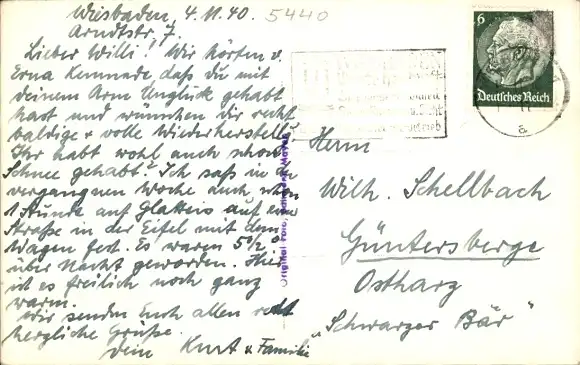 Wiesbaden, 4.11.40. 5440
Arndtstr, 7.
Lieber Willi! Wir hörten v.
Erna Kemnade, daß du mit
deinem Arm Unglück gehabt
hast und wünschen dir recht
baldige + volle Wiederherstellg
Ihr habt wohl auch schon
Schnee gehabt? Ich saß in der
vergangnen Woche auch schon
1 Stunde auf Glatteis auf einer
Straße in der Eifel mit dem
Wagen fest. Es waren 5½°
über Nacht geworden. Hier
ist es freilich noch ganz
warm.
Wir senden Euch allen recht
herzliche Grüße.
Dein Kurt u Familie
Original Foto,
6
Deutsches Reich
a
Herrn
Wilh. Schellbach
Güntersberge
Ostharz
„Schwarzer Bär"